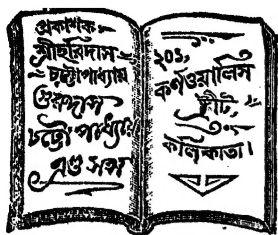 প্রকাশক:
শ্রীহরিদাস
চট্টোপাধ্যায়
গুরুদাস
চট্টোপাধ্যায়
এণ্ড সন্স
২০১,
কর্নওয়ালিস
স্ট্রীট,
কলিকাতা।